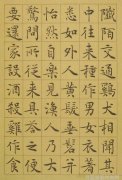 阡陌交通雞犬相聞其
中往來種作男女衣著
悉如外人黃髮垂髫並
怡然自樂見漁人乃大
驚問所從來具答之便
要還家設酒殺雞作食